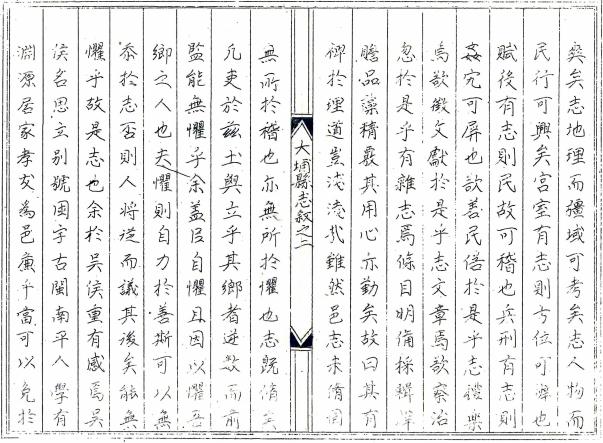 奕矣志地理而疆域可考矣志人物而
民行可興矣宮室有志則方位可辨也
賦後有志則民故可稽也兵刑有志則
姦宄可屏也欲善民俗於是乎志禮樂
焉欲徵文獻於是乎志文章焉欲察治
忽於是乎有雜志焉條目明備採輯
贍品藻精嚴其用心亦勤矣故曰其有
裨於理道豈淺淺哉雖然邑志未脩
大埔縣志敘之二
無所於稽也亦無所於懼也志既脩矣
凡吏於兹土與立乎其鄉者迹敗而前
監能無懼乎余盖足自懼且因以懼吾
鄉之人也夫懼則自力於善斯可以無
忝於志否則人將從而議其後矣能無
懼乎故是志也余於吳侯重有感焉吳
侯名思立别號固字古閩南平人學有
淵源居家孝友為邑廉平當可以免於